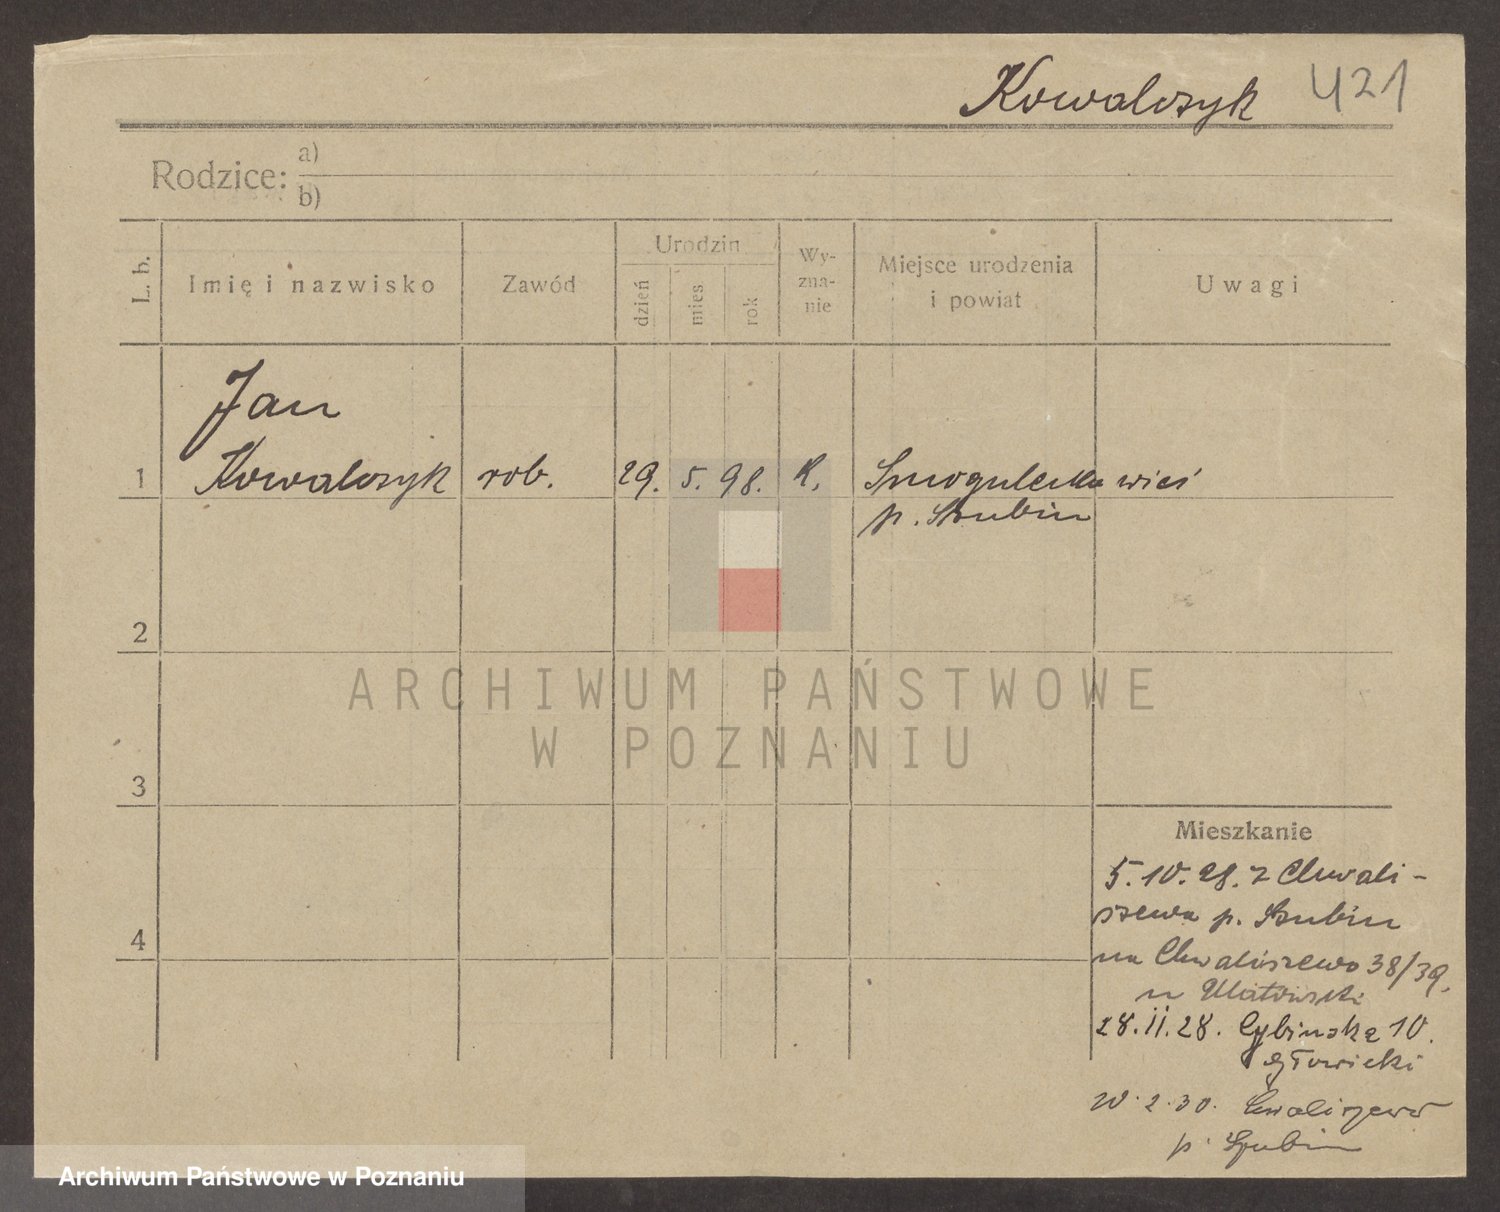 Kowalczyk 421
Rodzice: a)
b)
L. b.
Imię i nazwisko
Zawód
Urodzin
dzień
mies
rok
Wy-
zna-
nie
Miejsce urodzenia
i powiat
Uwagi
Jan
1 Kowalczyk rob. 29. 5. 98. K. Smogulecka wieś
p. Szubin
2
ARCHIWUM PAŃSTWOWE
W POZNANIU
3
Mieszkanie
5.10.28. z Chwali-
szewa p. Szubin
4
na Chwaliszewo 38/39.
28.11.28. Cybińska 10.
p. Szubin
Archiwum Państwowe w Poznaniu